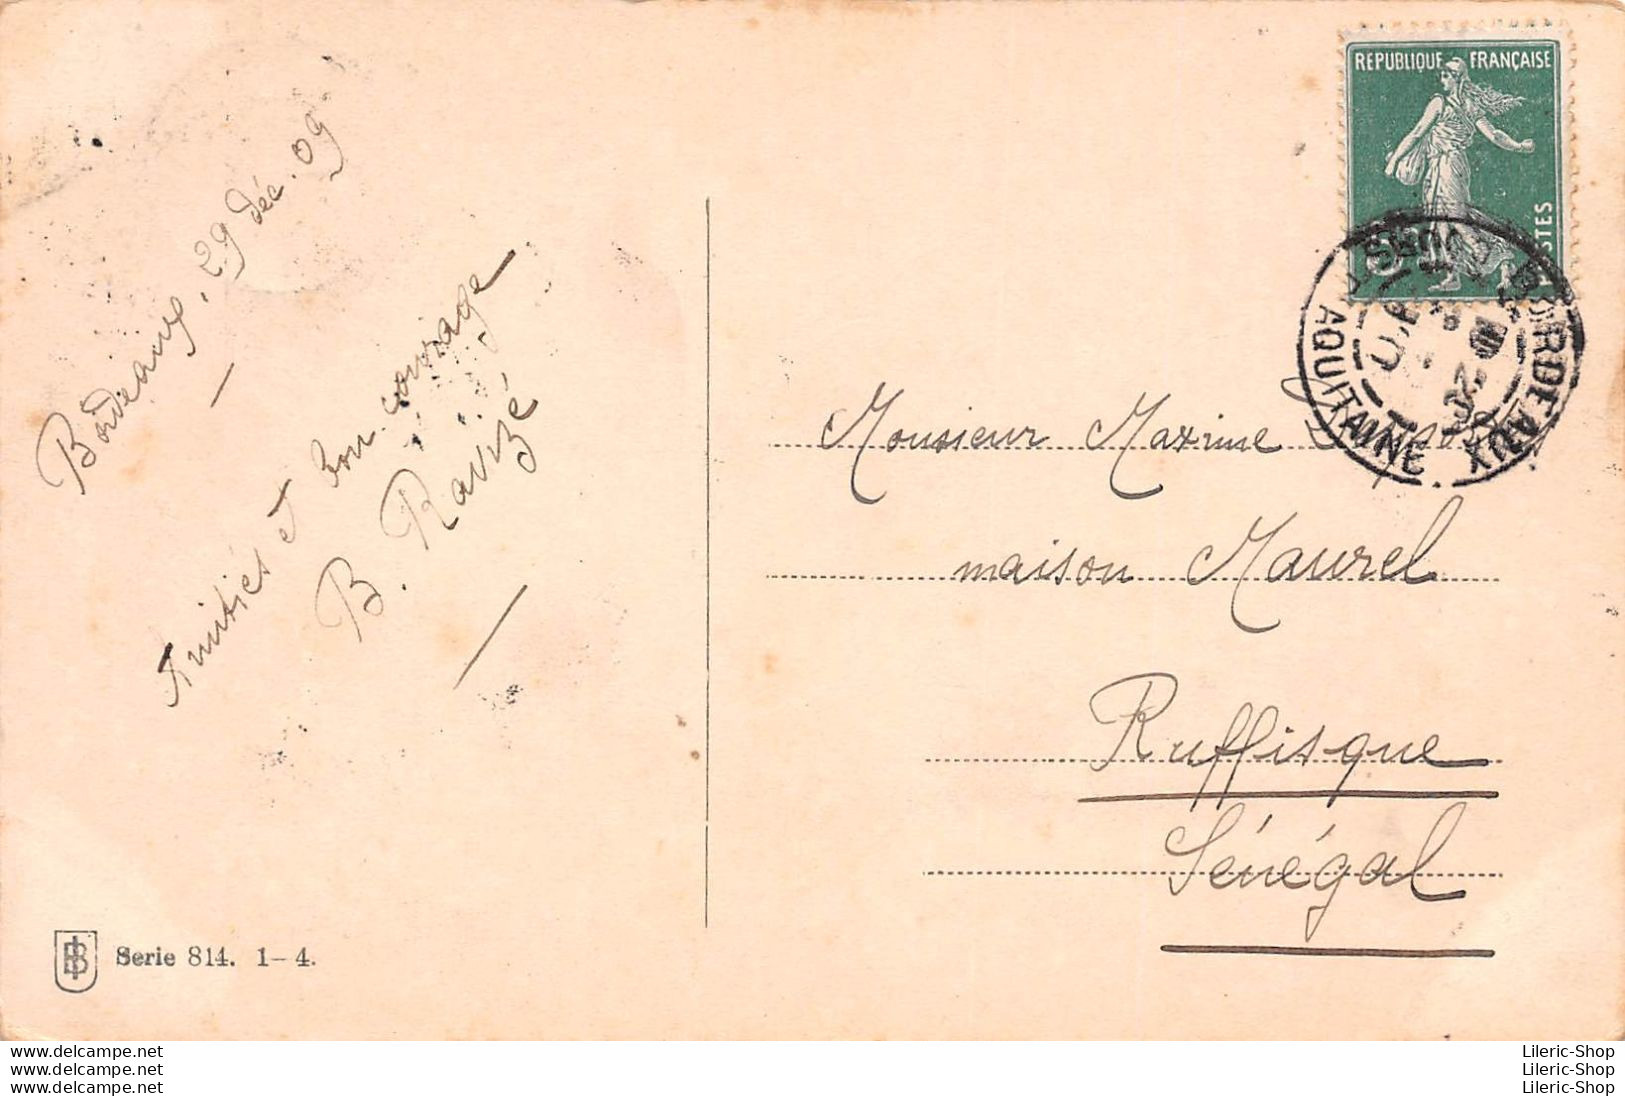 Bordeaux, 29 déc. 09
Amitiés et bon courage
B. Ravizé
REPUBLIQUE FRANÇAISE
POSTES
BORDEAUX
AQUITAINE
Monsieur Maxime
maison Maurel
Ruffisque
Sénégal
Serie 814. 1-4.
www.delcampe.net
www.delcampe.net
www.delcampe.net
Lileric-Shop
Lileric-Shop
Lileric-Shop